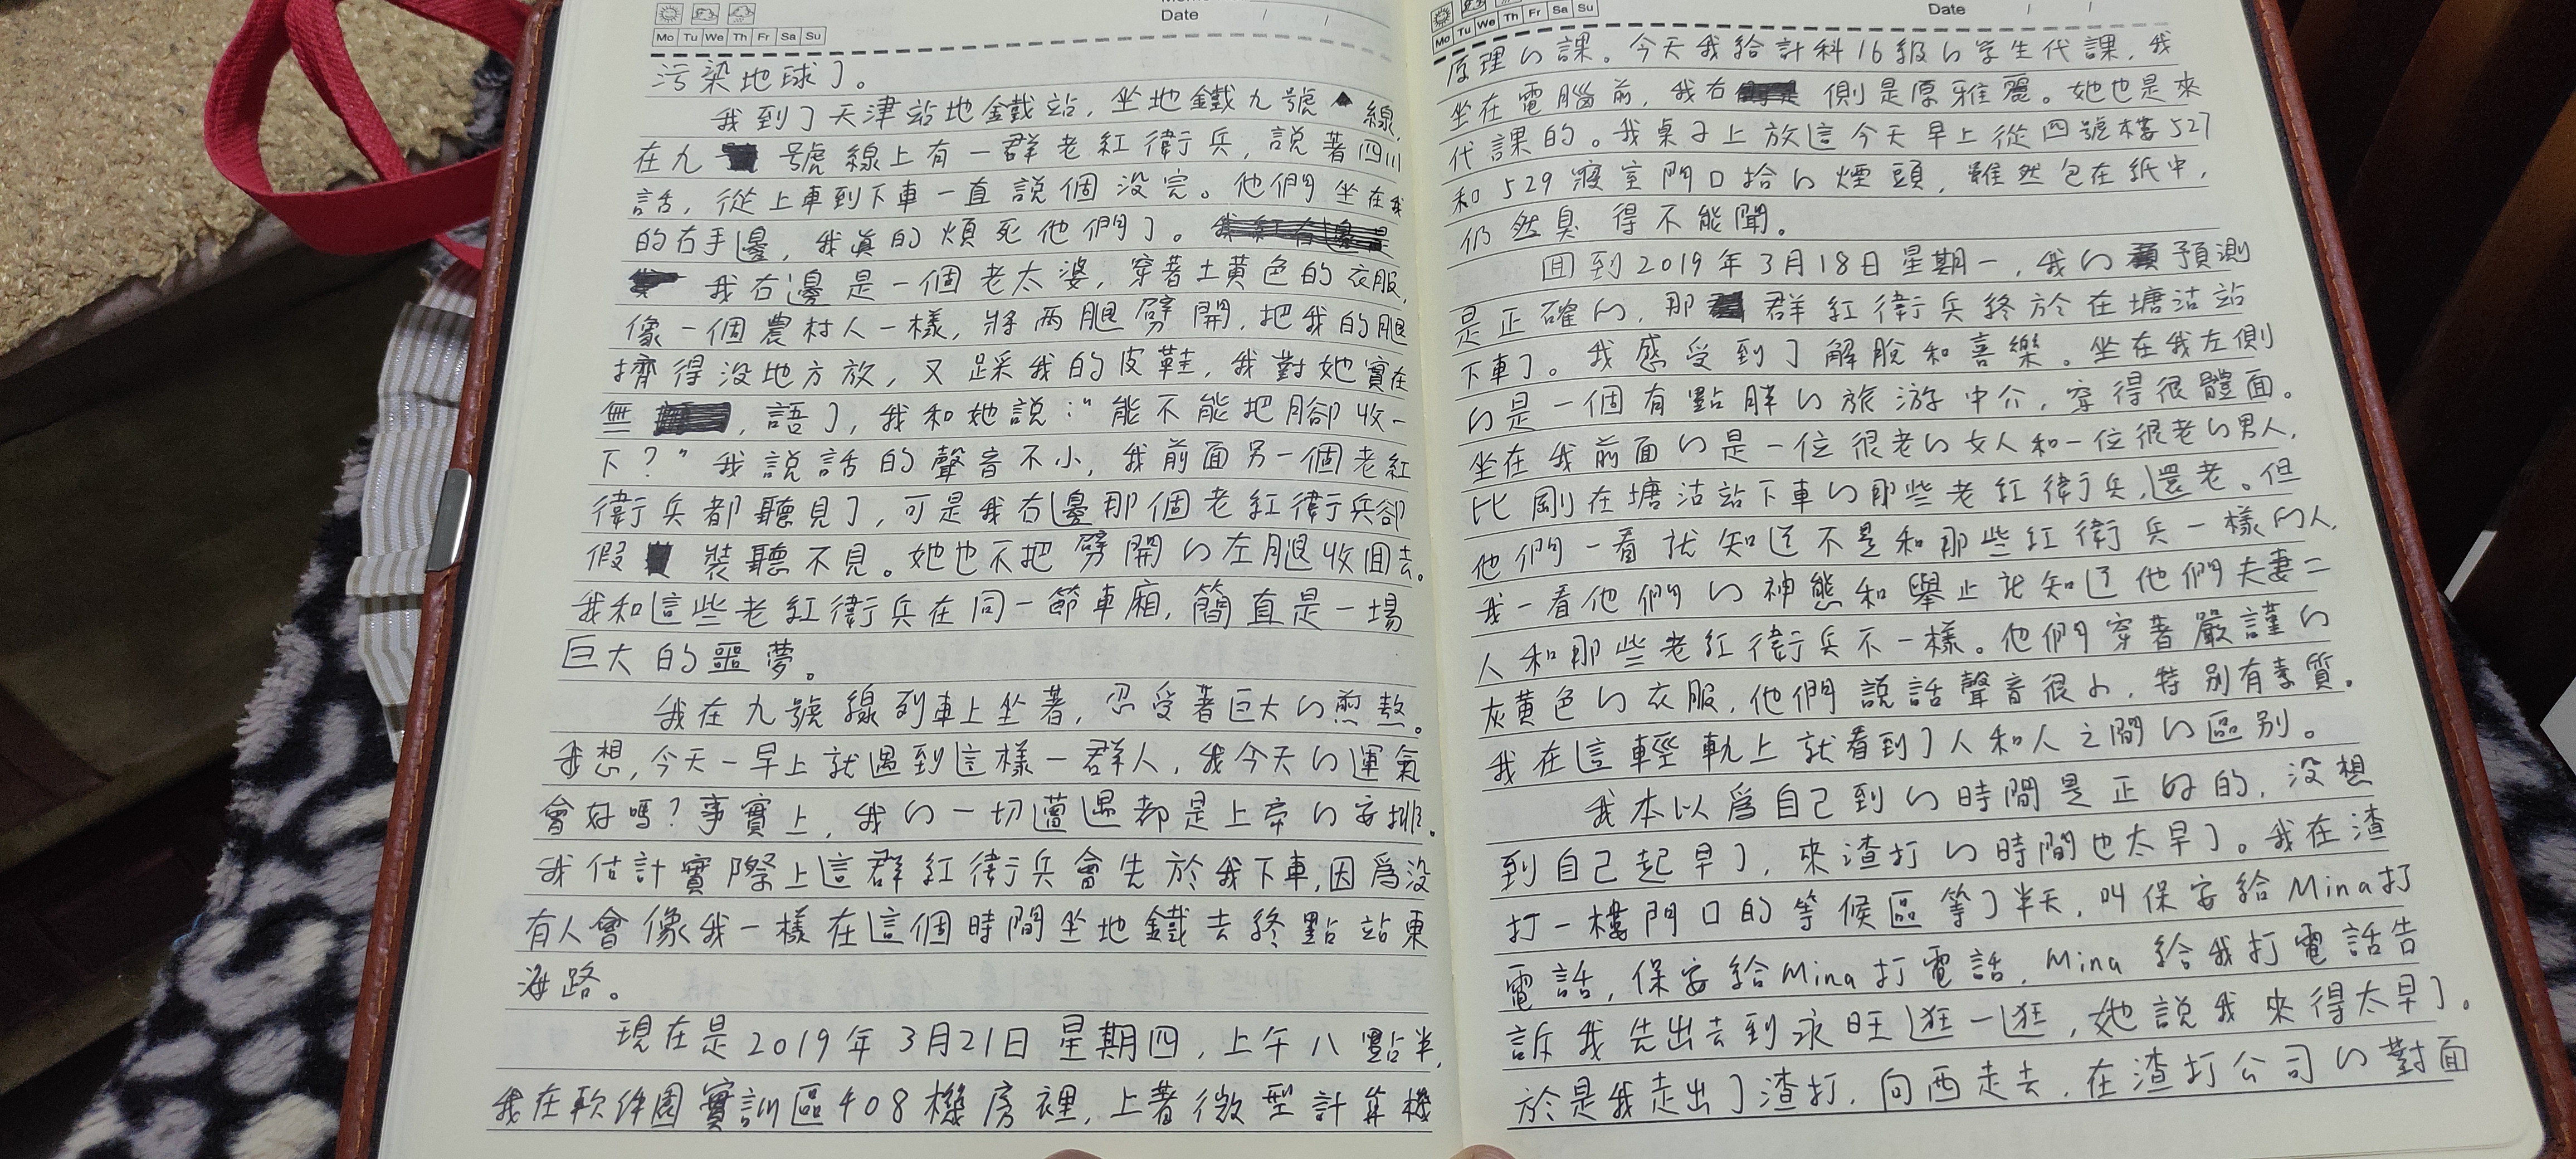 Mo Tu We Th Fr Sa Su
Date / /
污染地球了。
我到了天津站地鐵站，坐地鐵九號線，
在九號線上有一群老紅衛兵，説著四川
話，從上車到下車一直説個没完。他們坐在我
的右手邊，我真的煩死他們了。
我右邊是一個老太婆，穿著土黄色的衣服，
像一個農村人一樣，將两腿劈開，把我的腿
擠得没地方放，又踩我的皮鞋，我對她實在
無，語了，我和她説："能不能把腳收一
下？"我説話的聲音不小，我前面另一個老紅
衛兵都聽見了，可是我右邊那個老紅衛兵卻
假裝聽不見。她也不把劈開的左腿收回去。
我和這些老紅衛兵在同一節車廂，簡直是一場
巨大的噩夢。
我在九號線列車上坐著，忍受著巨大的煎熬。
我想，今天一早上就遇到這樣一群人，我今天的運氣
會好嗎？事實上，我的一切遭遇都是上帝的安排。
我估計實際上這群紅衛兵會先於我下車，因爲没
有人會像我一樣在這個時間坐地鐵去終點站東
海路。
現在是2019年3月21日星期四，上午八點半，
我在軟件園實訓區408機房裡，上著微型計算機
Mo Tu We Th Fr Sa Su
Date / /
原理的課。今天我給計科16級的学生代課，我
坐在電腦前，我右側是原雅麗。她也是來
代課的。我桌子上放這今天早上從四號樓527
和529寢室門口拾的煙頭，雖然包在紙中，
仍然臭得不能聞。
回到2019年3月18日星期一，我的預測
是正確的，那群紅衛兵終於在塘沽站
下車了。我感受到了解脫和喜樂。坐在我左側
的是一個有點胖的旅游中介，穿得很體面。
坐在我前面的是一位很老的女人和一位很老的男人，
比剛在塘沽站下車的那些老紅衛兵還老。但
他們一看就知道不是和那些紅衛兵一樣的人，
我一看他們的神態和舉止就知道他們夫妻二
人和那些老紅衛兵不一樣。他們穿著嚴謹的
灰黄色的衣服，他們説話聲音很小，特别有素質。
我在這輕軌上就看到了人和人之間的區别。
我本以爲自己到的時間是正好的，没想
到自己起早了，來渣打的時間也太早了。我在渣
打一樓門口的等候區等了半天，叫保安給Mina打
電話，保安給Mina打電話，Mina給我打電話告
訴我先出去到永旺逛一逛，她説我來得太早了。
於是我走出了渣打，向西走去，在渣打公司的對面